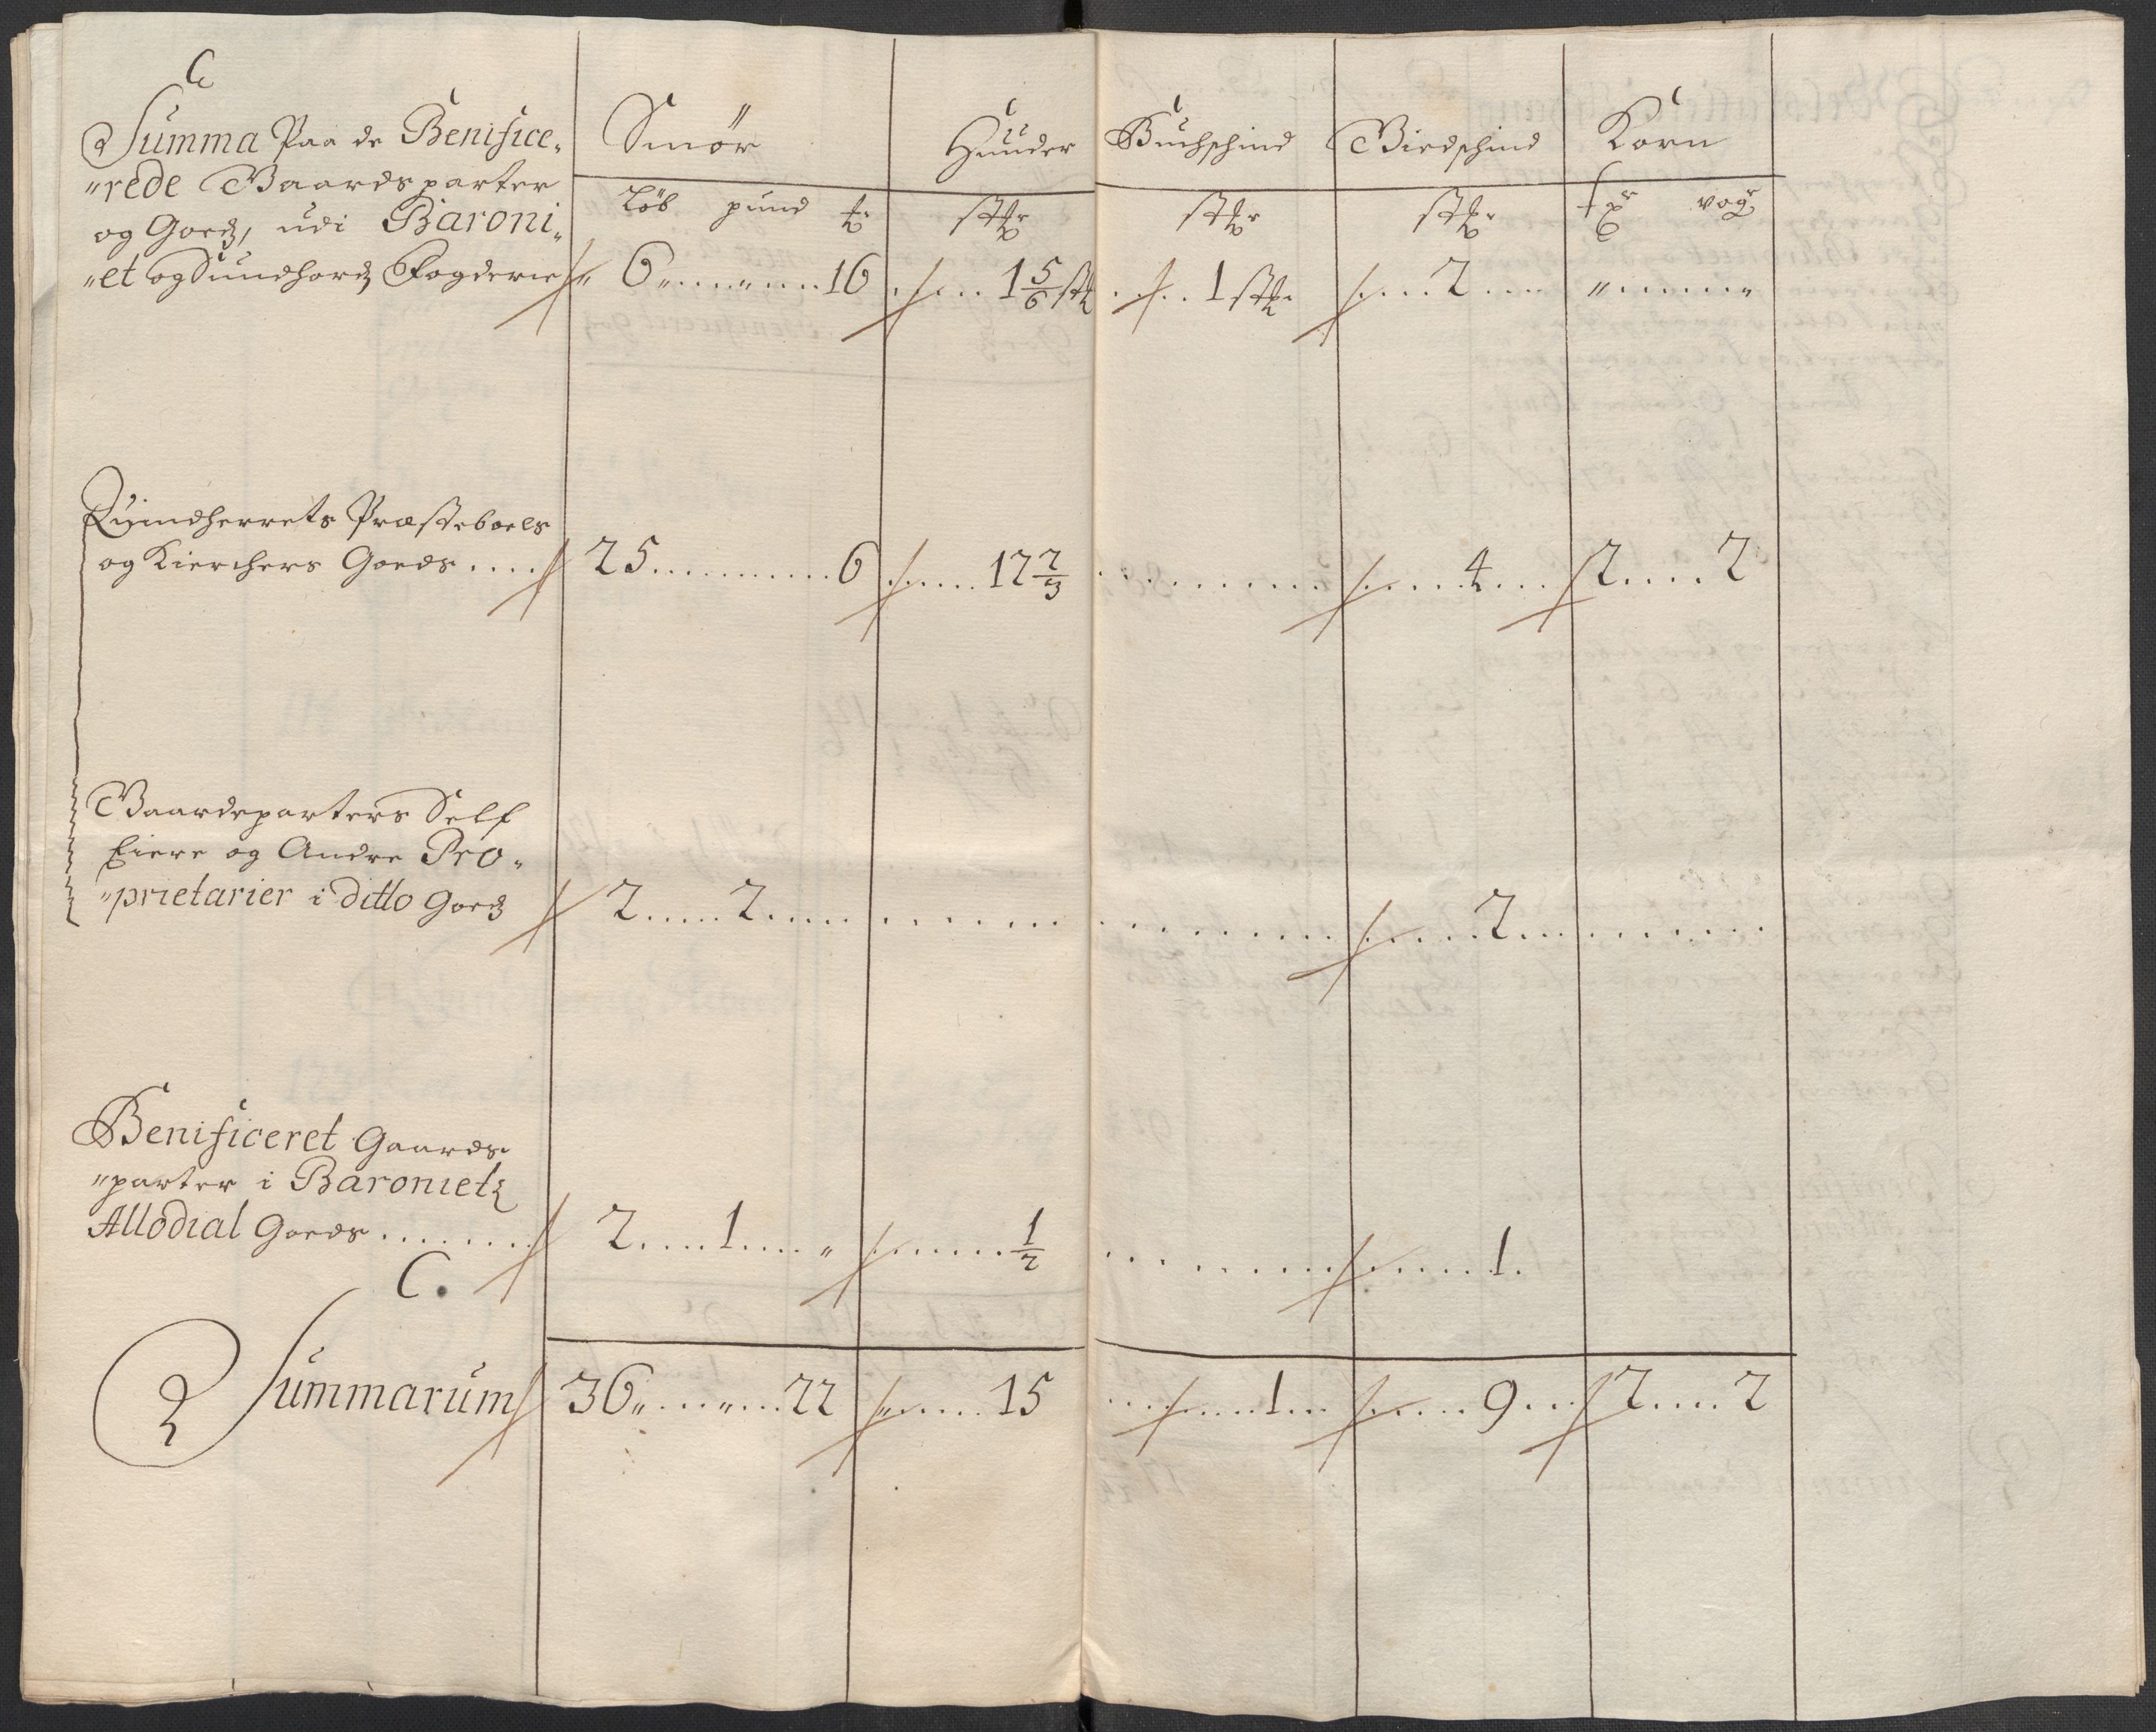 C
Summa Paa de Benifice„
„rede Gaardsparter
og Goedz, udi Baroni„
„et og Sundhordz Fogderie
Smør
Huuder
Buchschind
Giedschind
Korn
Løb pund
voger
6 „ „ 16
1 5/6 stk
1 stk
2
„ „
Quindherrets Præsteboels
og Kierchers Goeds ....
25 ........ 6
12 2/3
4
2 .... 2
Gaardeparters Self
Eiere og Andre Pro„
„prietarier i ditto Goedz
2 .... 2
2
Benificeret Gaards
„parter i Baronietz
Allodial Goeds .......
2 .... 1 .... „
1/2
1.
C.
Summarum
36 „ „ 22
15
1
9
2 .... 2